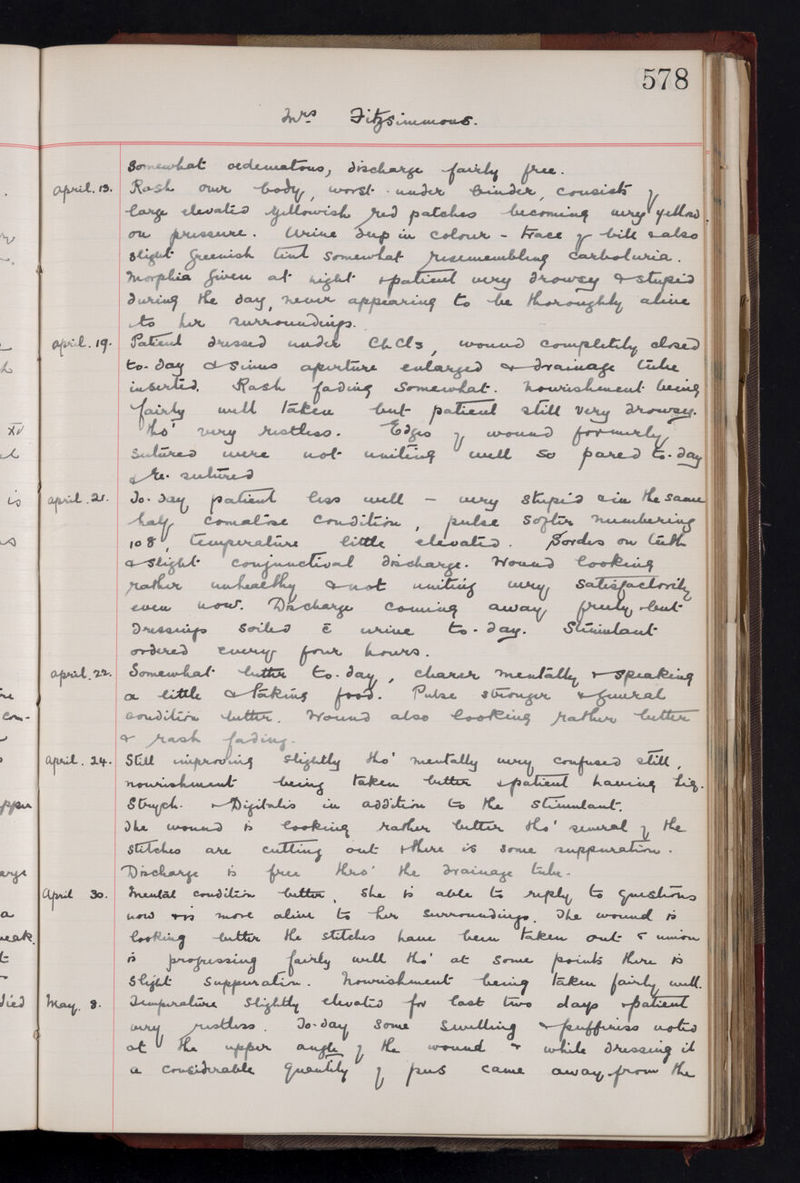 578
Mrs Fitzsimmons.
Somewhat oedematous, discharge fairly free.
April. 13. Rash over body, worst under binder, consists of
large elevated yellowish red patches becoming very yellow
on pressure. Urine deep in colour - trace of bile & also
slight greenish tint somewhat resemembling carboluria.
Morphia given at night & patient very drowsy & stupid
during the day, never appearing to be thoroughly alive
to her surroundings.
April. 19. Patient dressed under CHCl3, wound completely closed
to-day & sinus aperture enlarged & drainage tube
inserted. Rash fading somewhat. Nourishment being
fairly well taken but patient still very drowsy.
tho' very restless. Edges of wound formerly
sutured were not uniting well so pared to-day
& re-sutured
April. 21. To-day patient less well - very stupid & in the same
half comatose condition, pulse softer numbering
108, temperature little elevated. Sordes on teeth
& slight conjunctival discharge. Wound looking
rather unhealthy & not uniting very satisfactorily
even now. Discharge coming away freely, but
dressings soiled c̄ urine to-day. Stimulant
ordered every four hours.
April. 22. Somewhat better to-day, clearer mentally & speaking
a little & taking food. Pulse stronger & general
condition better. Wound also looking rather better
& rash fading.
April. 24. Still improving slightly tho' mentally very confused still,
nourishment being taken better & patient having liq.
Strych. & Digitalis in addition to the stimulant.
The wound is looking rather better tho' several of the
stitches are cutting out & there is some suppuration.
Discharge is free thro' the drainage tube.
April 30. Mental condition better, she is able to reply to questions
now & is more alive to her surroundings. The wound is
looking better the stitches have been taken out & union
is progressing fairly well tho' at some points there is
slight suppuration. Nourishment being taken fairly well.
May. 8. Temperature slightly elevated for last two days & patient
very restless. To-day some swelling & puffiness noted
at the upper angle of the wound & while dressing it
a considerable quantity of pus came away from the